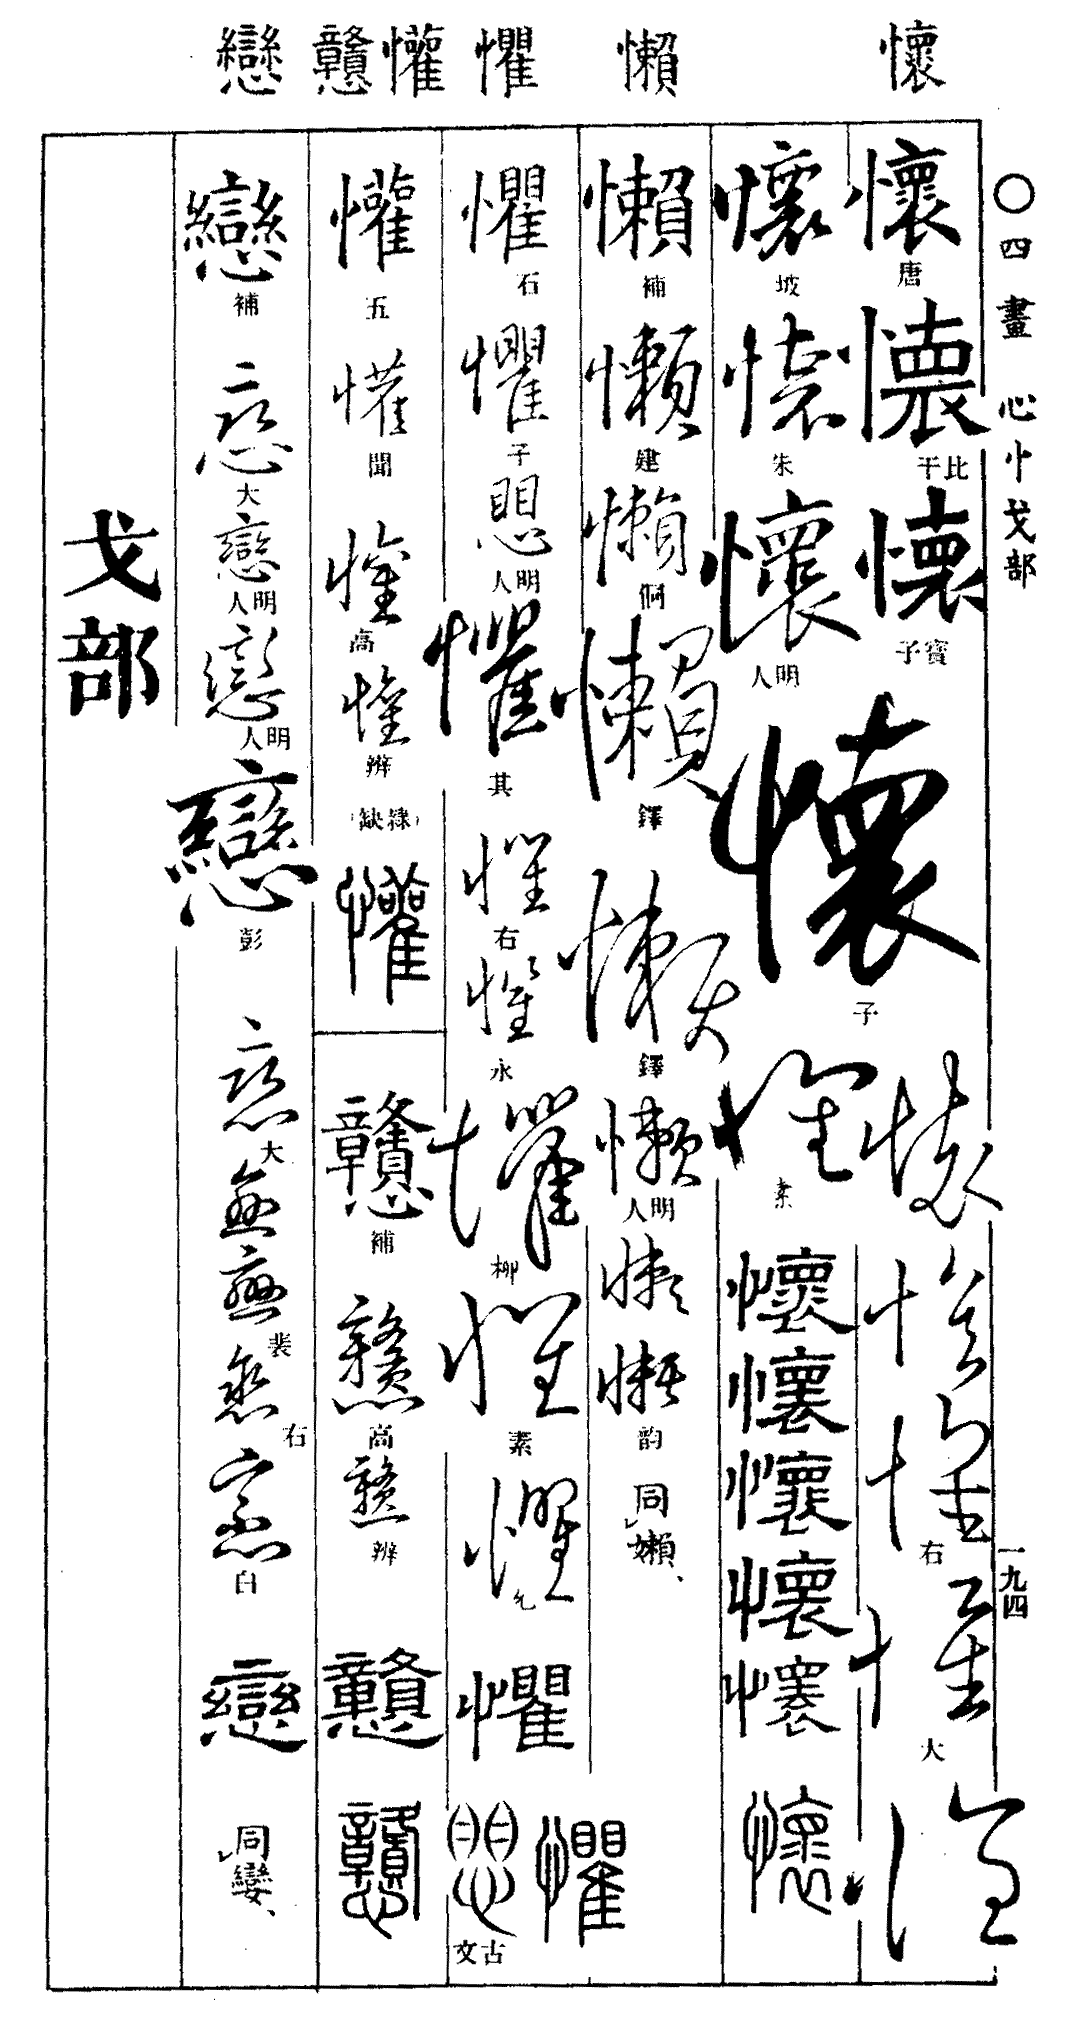 懷
懶
懼
懽
戇
戀
〇四畫 心忄戈部
一九四
懷 唐
懷 平比
懷 子寶
懷 右
懷 大
懷 坡
懷 朱
懷 人明
懷 子
懷 素
懷 懷 懷 懷 懷
懷
懶 補
懶 建
懶
懶 鐸
懶 鐸
懶 人明
懶 懶 韵
同嬾、
懼 石
懼 子
思 人明
懼 其
懼 右
懼 永
懼 柳
懼 素
懼
懼
懼
文古
懽 五
懽 聞
懽 高
懽 辨
(缺隸)
懽
戇 補
戇 高
戇 辨
戇
戇
戀 補
戀 大
戀 人明
戀 人明
戀 彭
戀 大
戀 戀 裴
戀 右
戀
戀
同孌、
戈部